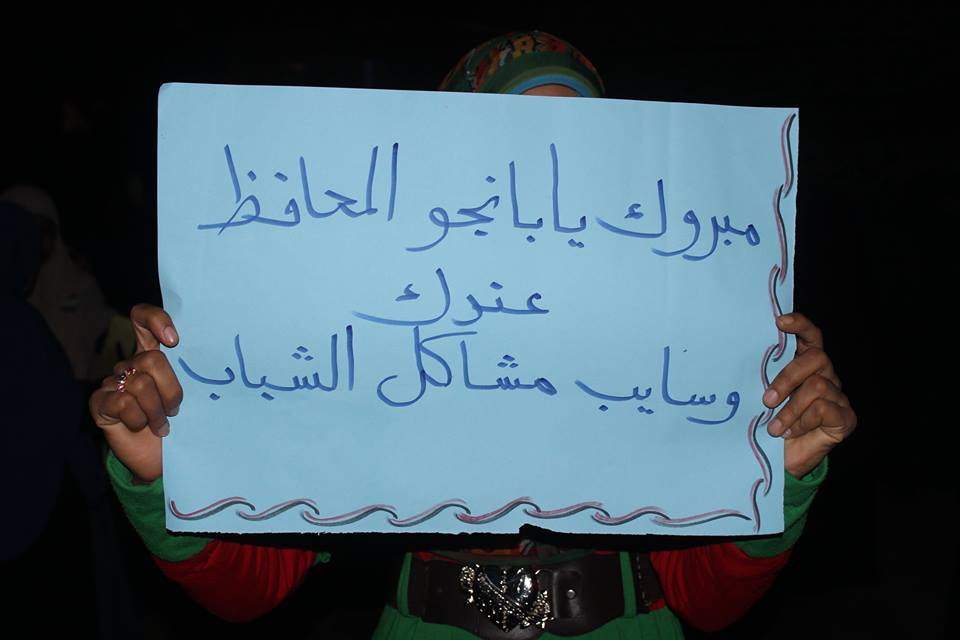 مبروك يا بانجو المحافظ
عندك
وسايب مشاكل الشباب